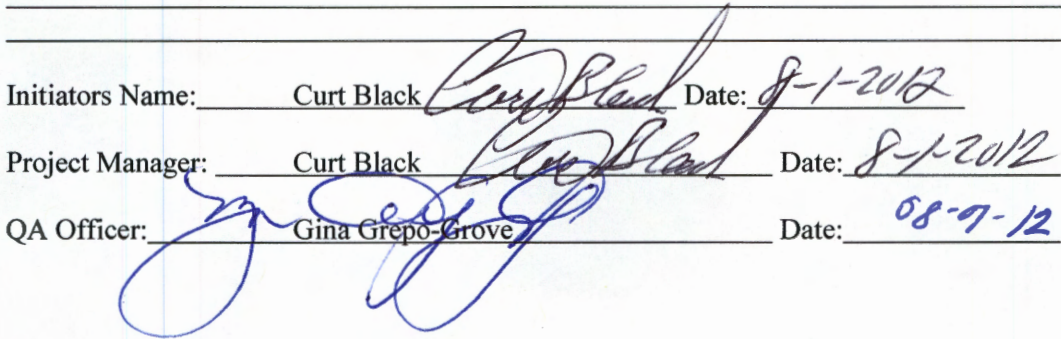 Initiators Name: Curt Black Curt Black Date: 8-1-2012
Project Manager: Curt Black Curt Black Date: 8-1-2012
QA Officer: Gina Grepo-Grove Date: